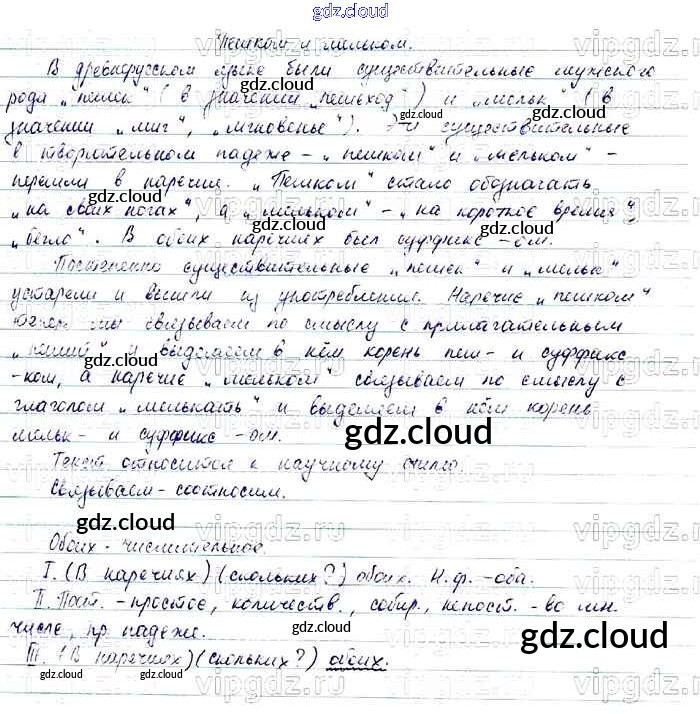 gdz.cloud
Пешком и мельком.
В древнерусском языке были существительные мужского
рода „пешек“ (в значении „пешеход“) и „мельк“ (в
значении „миг“, „мгновенье“). Эти существительные
в творительном падеже – „пешком“ и „мельком“ –
перешли в наречия. „Пешком“ стало обозначать
„на своих ногах“, а „мельком“ – „на короткое время“,
„бегло“. В обоих наречиях был суффикс -ом.
Постепенно существительные „пешек“ и „мельк“
устарели и вышли из употребления. Наречие „пешком“
теперь мы связываем по смыслу с прилагательным
„пеший“ и выделяем в нём корень пеш- и суффикс
-ком, а наречие „мельком“ связываем по смыслу с
глаголом „мелькать“ и выделяем в нём корень
мельк- и суффикс -ом.
Текст относится к научному стилю.
Связываем - соотносим.
Обоих - числительное.
I. (В наречиях) (скольких?) обоих. Н.ф. - оба.
II. Пост. - простое, количеств., собир., непост. - во мн.
числе, пр. падеже.
III. (В наречиях) (скольких?) обоих.